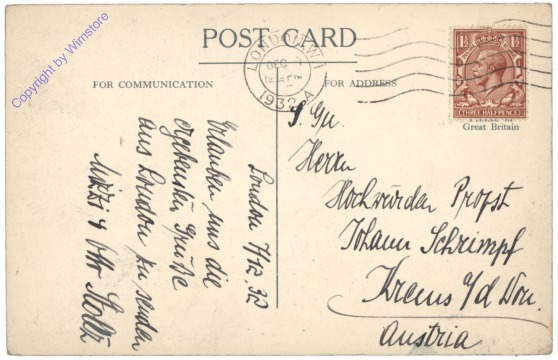 Copyright by Wimstore
POST CARD
FOR COMMUNICATION
FOR ADDRESS
LONDON, W.1
DEC
1932 A
1½ 1½
THREE HALFPENCE
Great Britain
London 7/12.32
Erlauben uns die
ergebensten Grüße
aus London zu senden
Mitzi & Otto Stolz
S. Gn.
Herrn
Hochwürden Propst
Johann Schrimpf
Krems a/d Don.
Austria